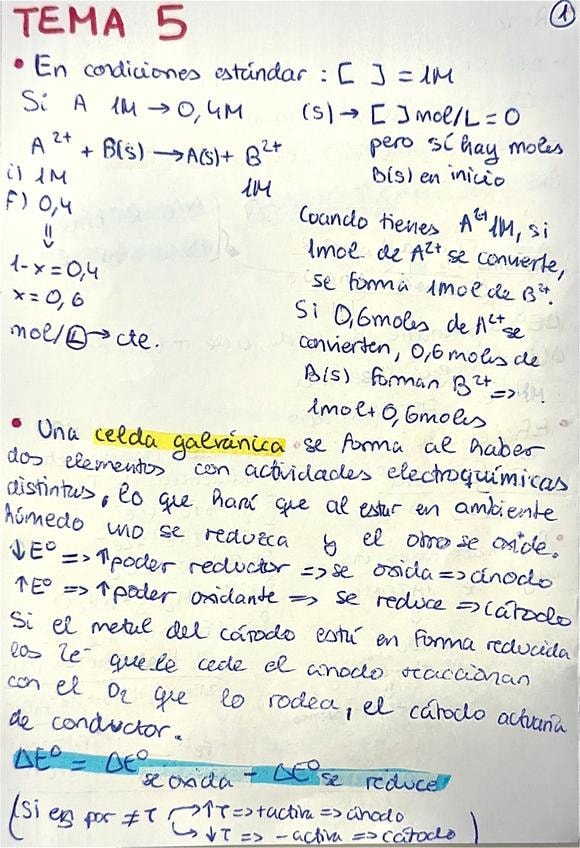 TEMA 5
1
• En condiciones estándar : [ ] = 1M
Si A 1M → 0,4M
A²⁺ + B(s) → A(s) + B²⁺
i) 1M 1M
F) 0,4
⇓
1-x = 0,4
x = 0,6
mol/L → cte.
(s) → [ ] mol/L = 0
pero sí hay moles
B(s) en inicio
Cuando tienes A²⁺ 1M, si
1mol de A²⁺ se convierte,
se forma 1mol de B²⁺.
Si 0,6moles de A²⁺ se
convierten, 0,6 moles de
B(s) forman B²⁺ =>
1mol + 0,6moles
• Una celda galvánica se forma al haber
dos elementos con actividades electroquímicas
distintas, lo que hará que al estar en ambiente
húmedo uno se reduzca y el otro se oxide.
↓E⁰ => ↑poder reductor => se oxida => ánodo
↑E⁰ => ↑poder oxidante => se reduce => cátodo
Si el metal del cátodo está en forma reducida
los 2e⁻ que le cede el ánodo reaccionan
con el O₂ que lo rodea, el cátodo actuaría
de conductor.
ΔE⁰ = ΔE⁰ se oxida - ΔE⁰ se reduce
(Si es por ≠ T → ↑T => +activa => ánodo
→ ↓T => -activa => cátodo)